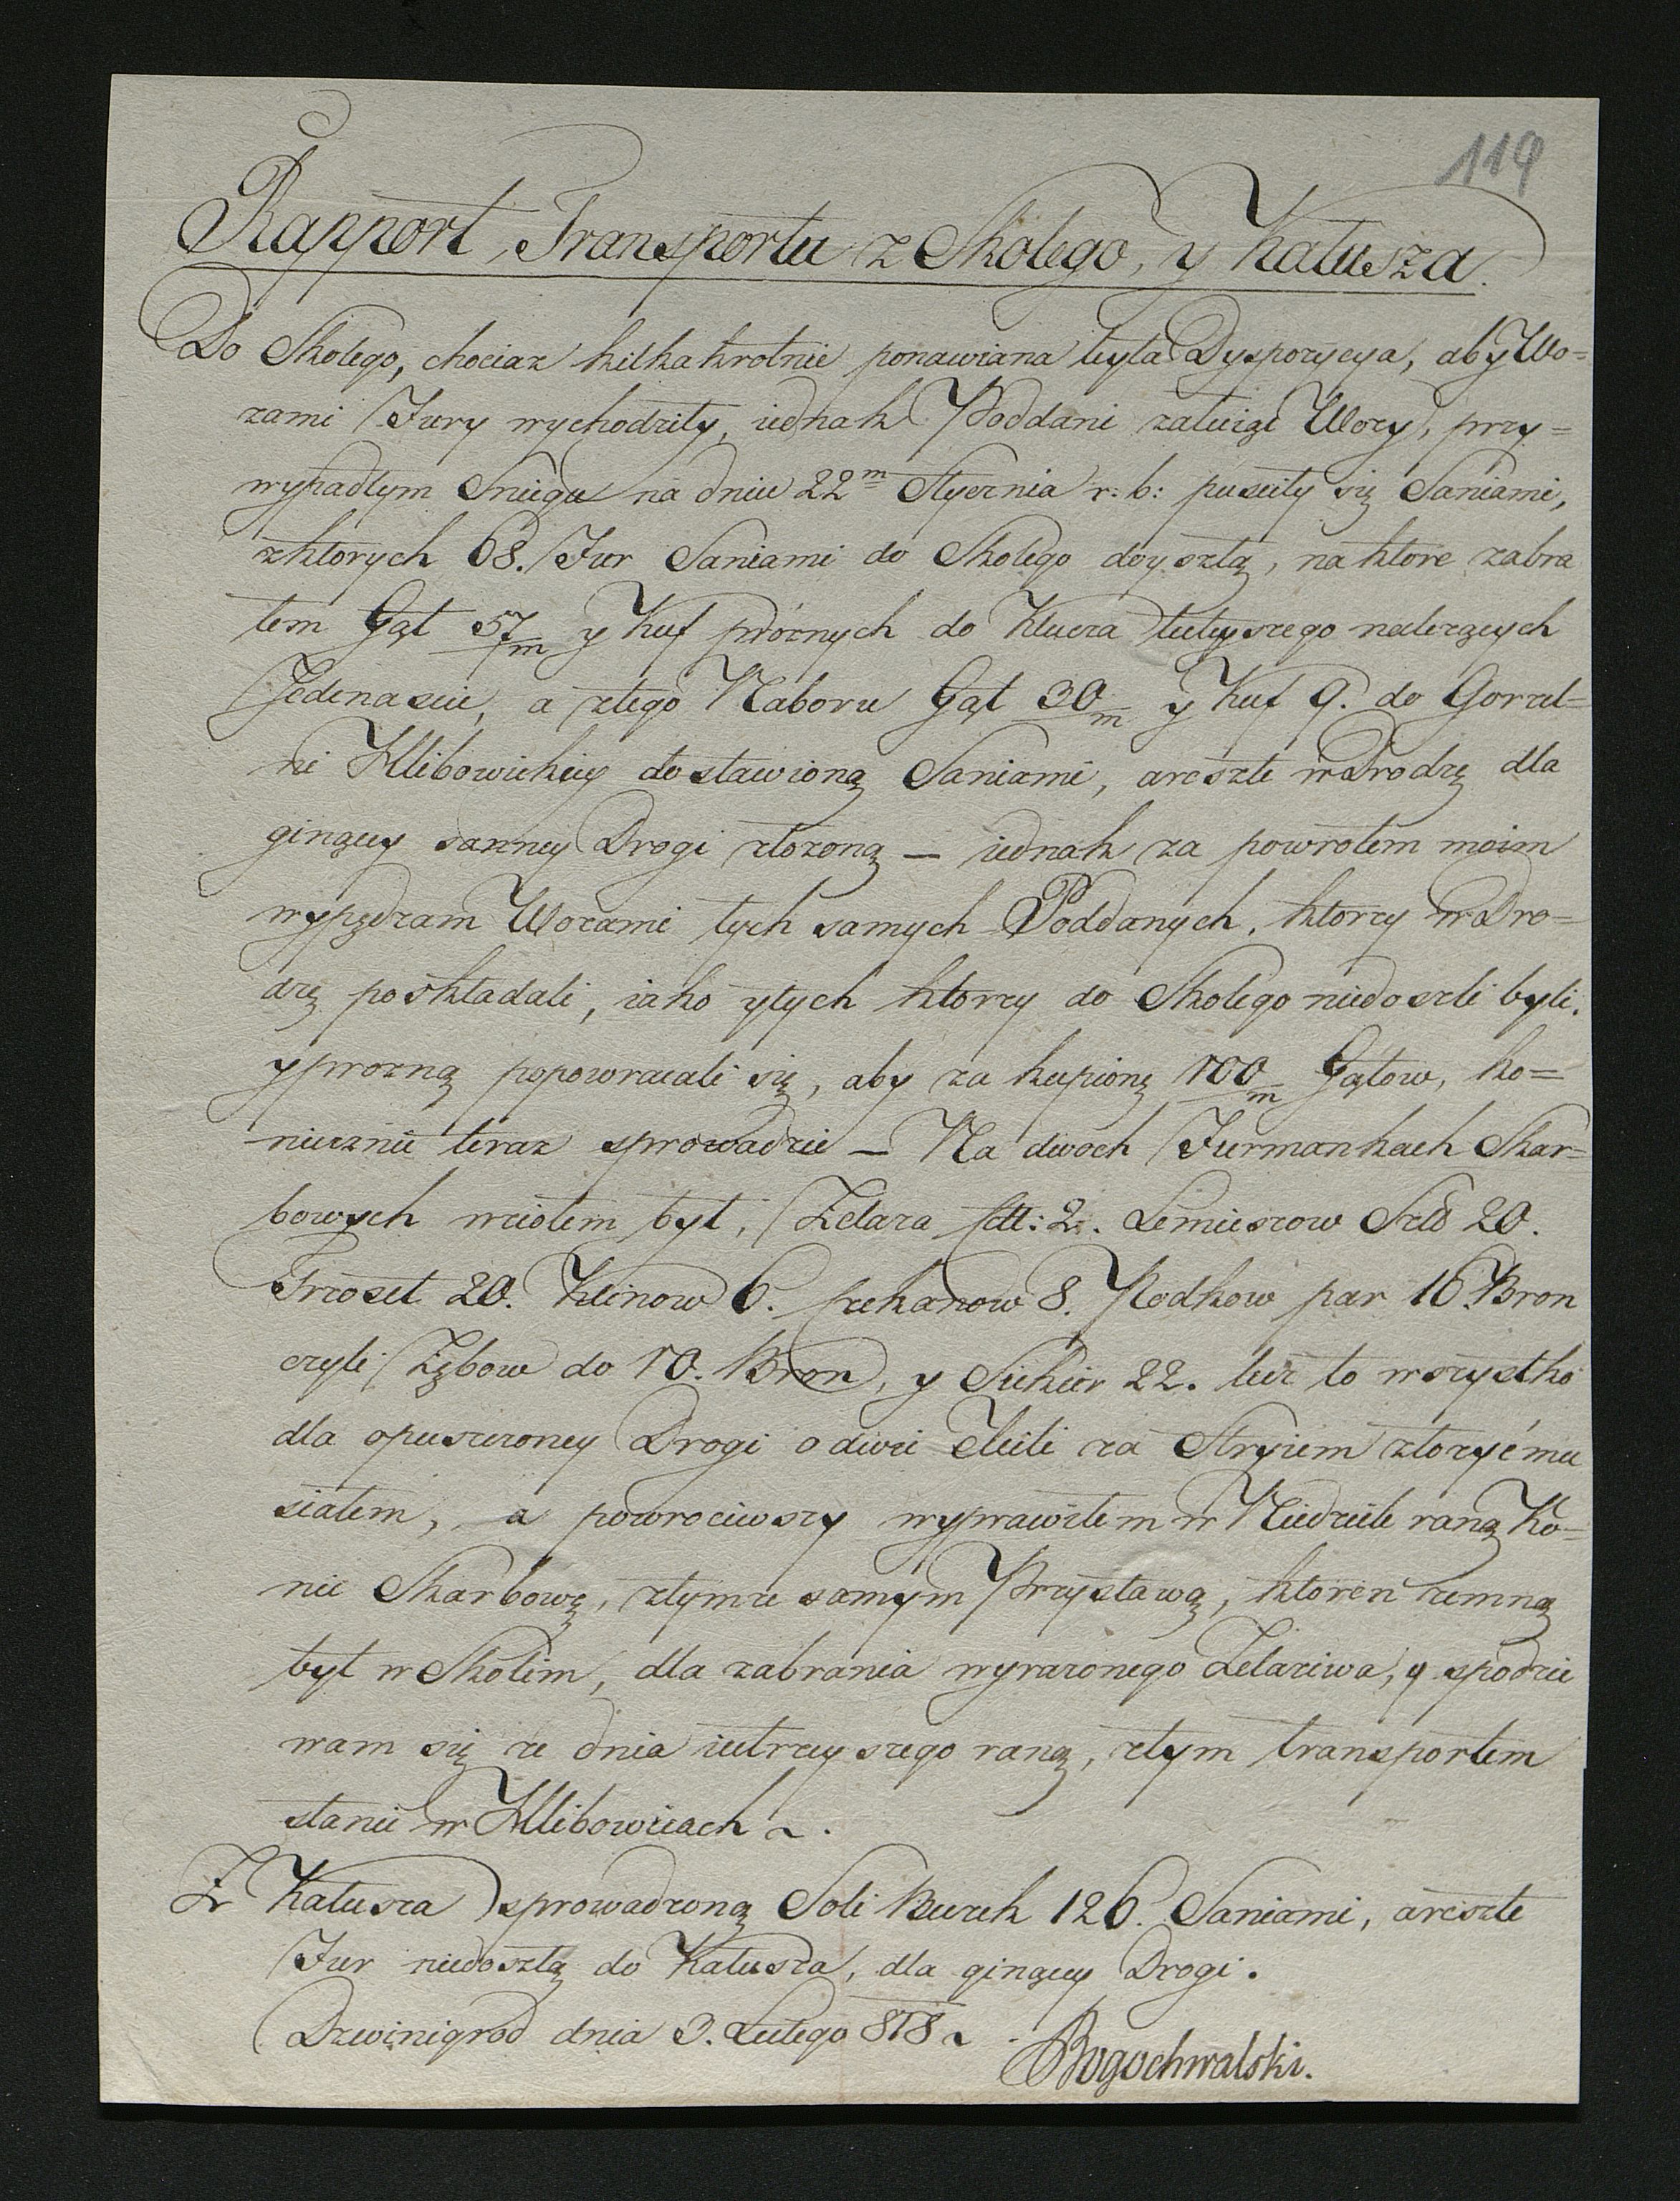 119
Rapport, Transportu z Skolego, y Kałusza.
Do Skolego, chociaz kilkakrotnie ponawiana była Dyspozycya, aby Wo=
zami Fury wychodziły, iednak Poddani załuiąc Wozy, przy=
wypadłym Sniegu na dniu 22m Stycznia r: b: puscity się Saniami,
zktorych 68. Fur Saniami do Skolego doyszłą, naktore zabra
łem Gąt 57/m y Kuf próznych do Klucza tuteyszego nalezących
Jedenascie, a ztego Naboru Gąt 30/m y Kuf 9. do Gorzel=
ni Hlibowickiey dostawioną Saniami, areszte wDrodzę dla
ginącey sanney Drogi złozoną — iednak za powrotem moim
wypędzam Wozami tych samych Poddanych, ktorzy wDro=
dzę poskładali, iako ytych ktorzy do Skolego niedoszli byli,
yprozną popowracali się, aby zakupionę 100/m Gątow, ko=
niecznie teraz sprowadzic — Na dwoch Furmankach Skar=
bowych wziołem był, Zelaza fdt: 2. Lemieszow Sztd 20.
Trzoset 20. Klinow 6. frekanow 8. Rodkow par 16. Bron
czyli Zębow do 10. Bron, y Siekier 22. lecz to wszystko
dla opuszczoney Drogi o dwie Mili za Stryiem złozyć mu
siałem, a powrociwszy wyprawiłem w Niedziele raną Ko=
nie Skarbowę, ztymze samym Przystawą, ktoren zemną
był w Skolim, dla zabrania wyrazonego Zelaziwa, y spodzie
wam się ze dnia iutrzeyszego raną, ztym transportem
stanie w Hlibowicach ~.
Z Kałusza sprowadzoną Soli Beczek 126. Saniami, areszte
Fur niedoszłą do Kałusza, dla ginącey Drogi.
Dzwinigrod dnia 3. Lutego 818 ~
Bogochwalski.